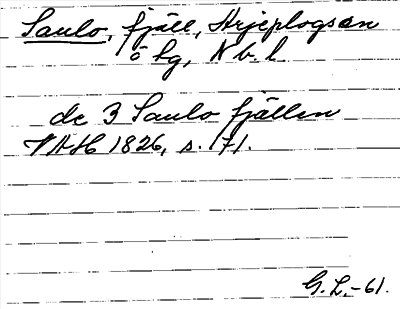 Saulo, fjäll, Arjeplogs sn
ö kg, Nb. l.
de 3 Saulo fjällen
VAH 1826, s. 171.
G. L. -61.